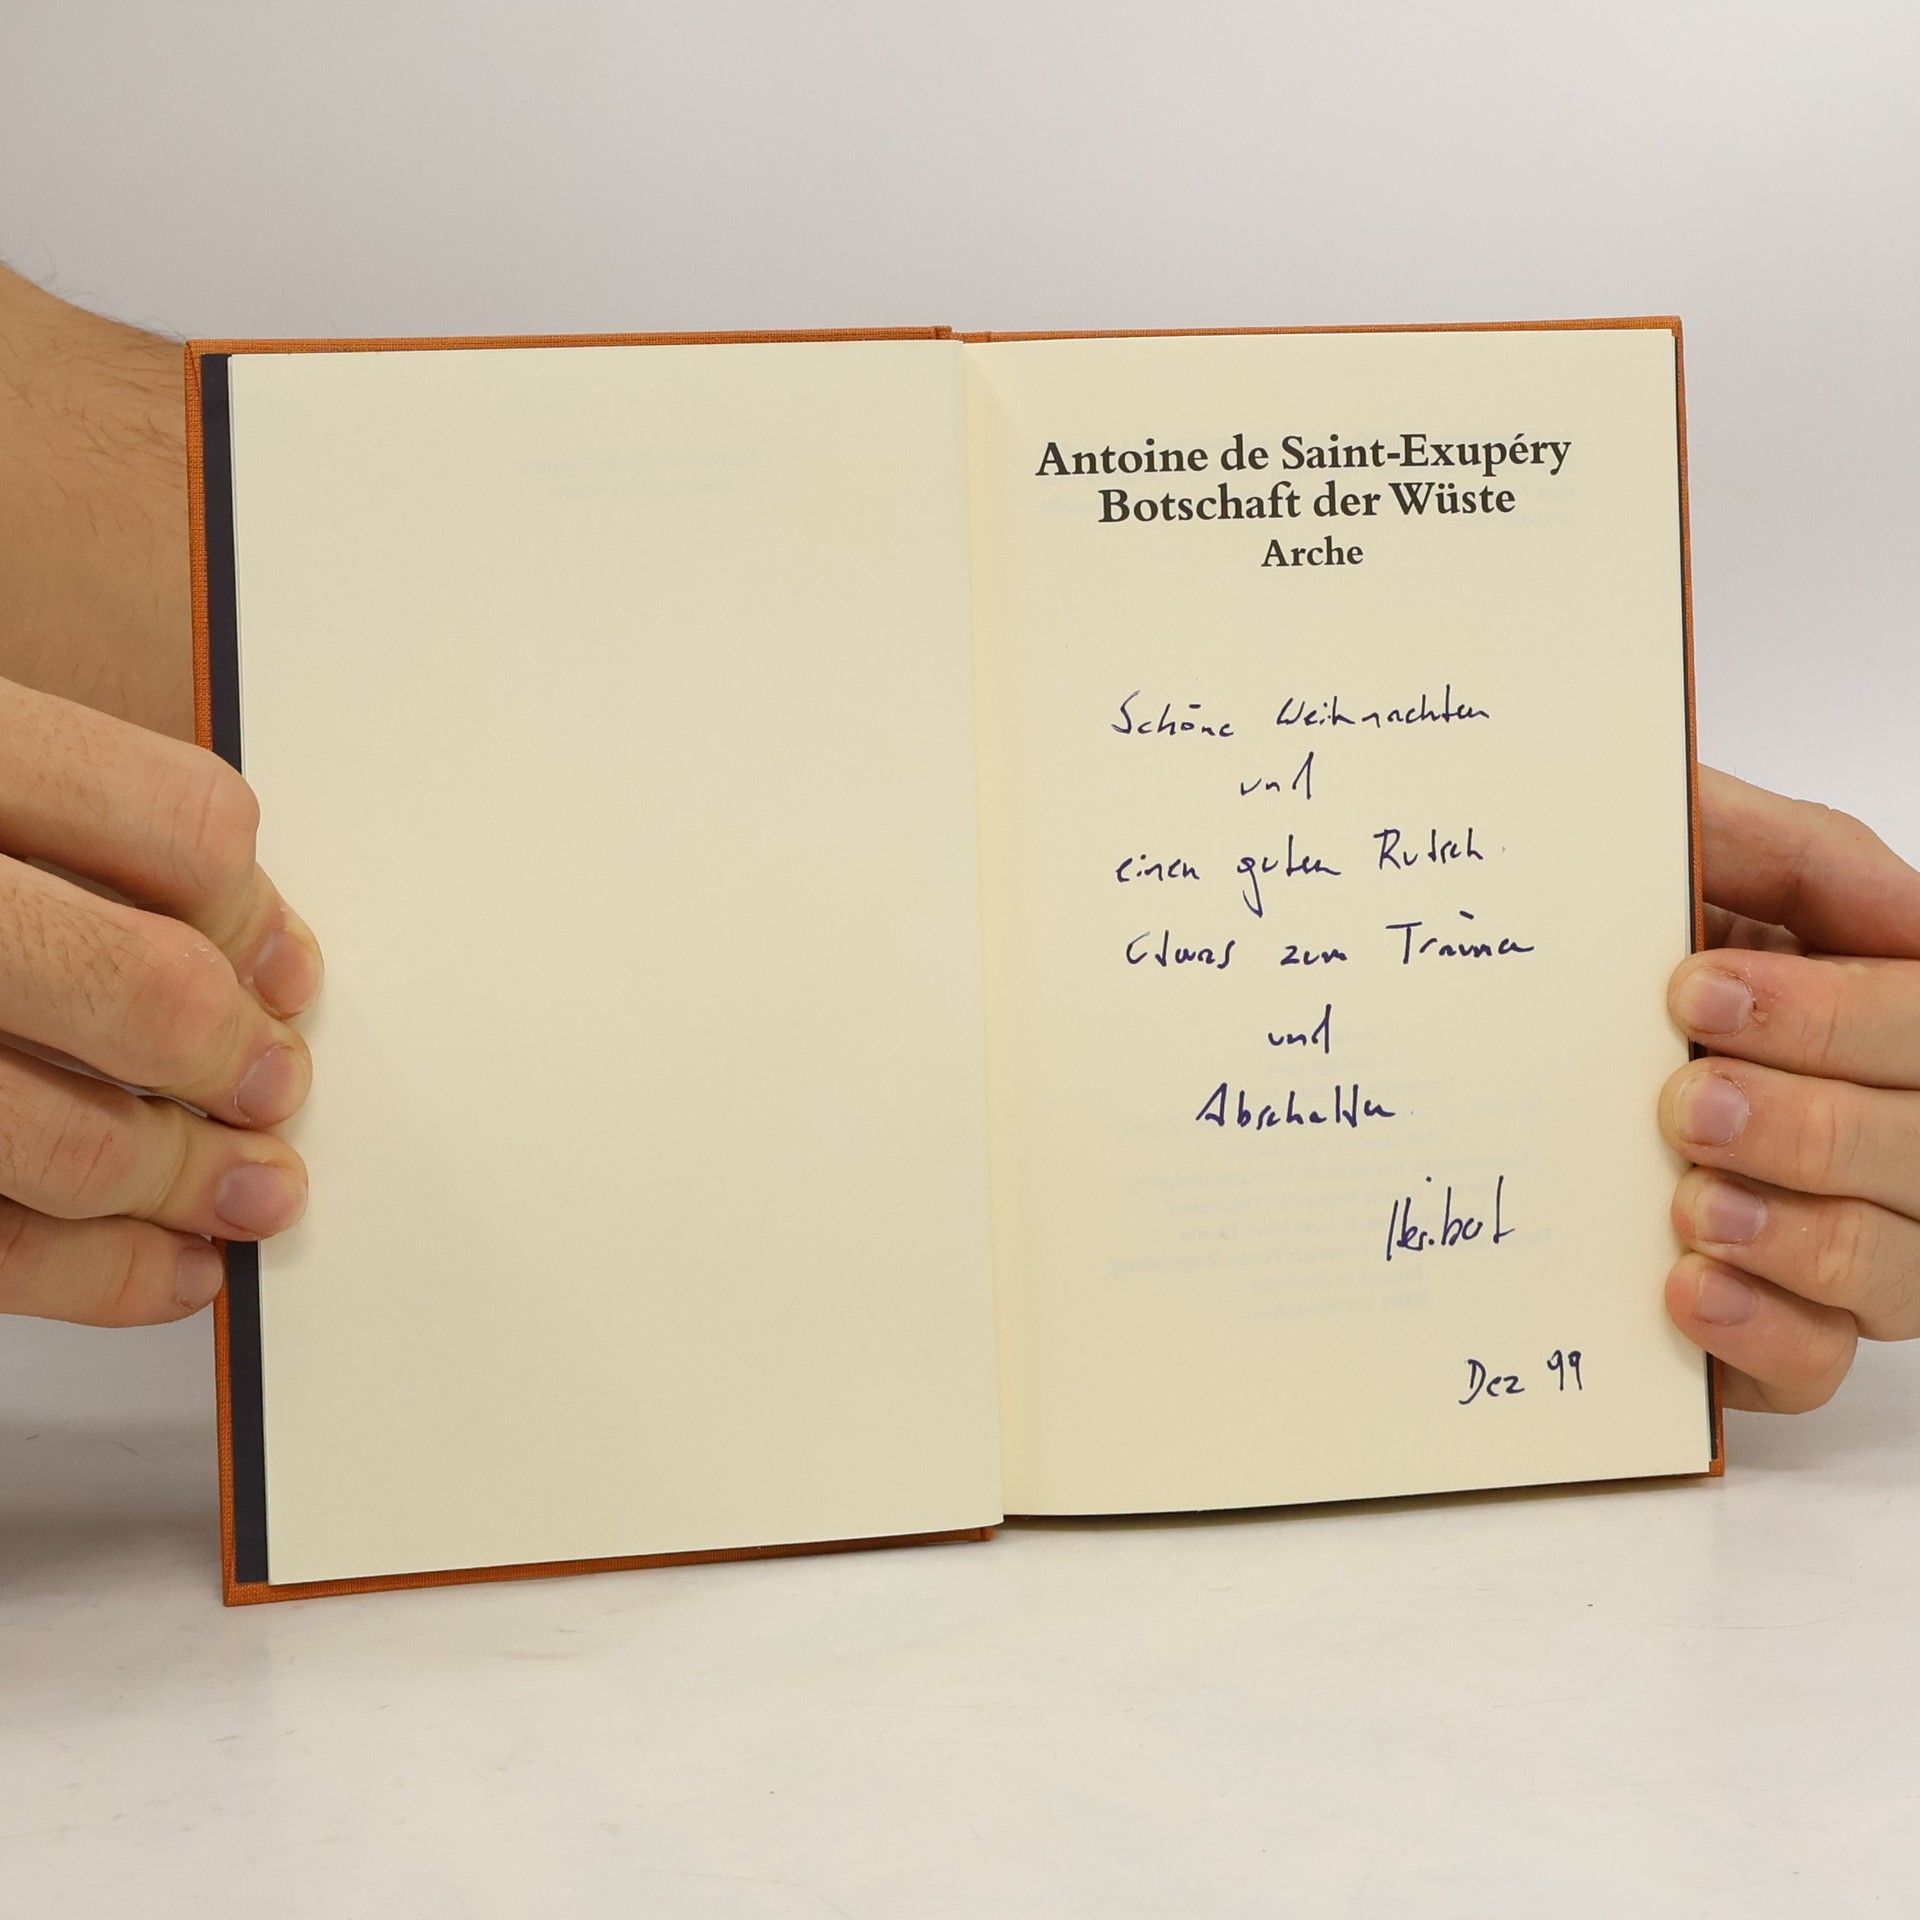 Antoine de Saint-Exupéry
Botschaft der Wüste
Arche
Schöne Weihnachten
und
einen guten Rutsch.
Etwas zum Träumen
und
Abschalten.
Heribert
Dez 99